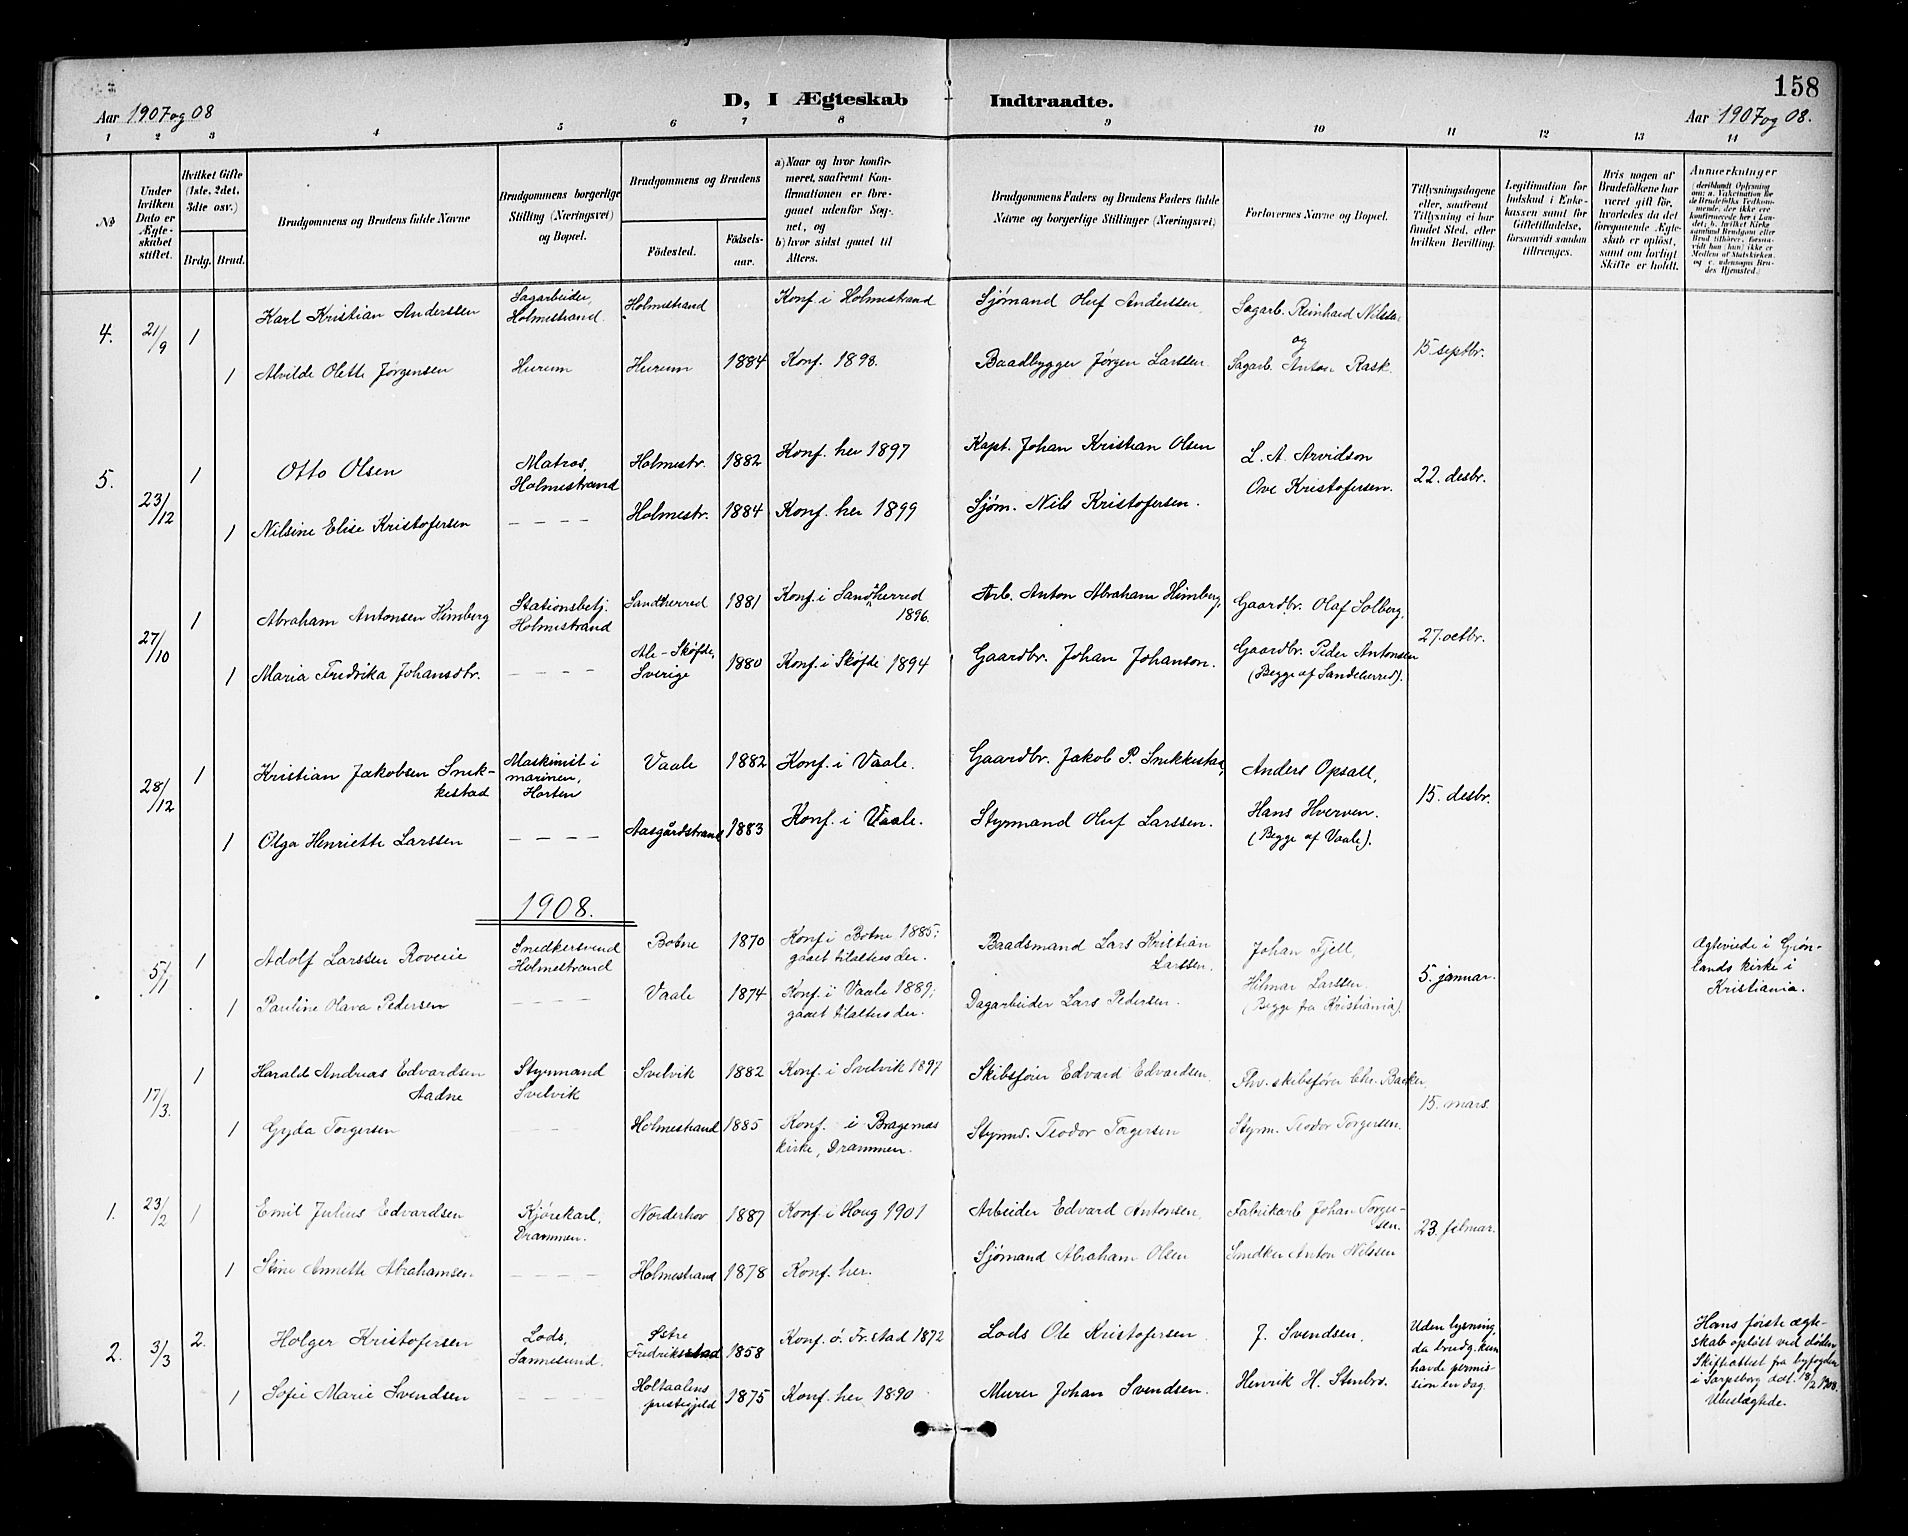 158
D, I Ægteskab Indtraadte.
Aar 1907 og 08
Aar 1907 og 08.
1 2 3 4 5 6 7 8 9 10 11 12 13 14
№
Under hvilken Dato er Ægteskabet stiftet.
Hvilket Gifte (1ste, 2det, 3die osv.)
Brdg. Brud.
Brudgommens og Brudens fulde Navne
Brudgommens borgerlige Stilling (Næringsvei) og Bopæl.
Brudgommens og Brudens
Födested.
Födselsaar.
a) Naar og hvor konfirmeret, saafremt Konfirmationen er foregaaet udenfor Sognet, og
b) hvor sidst gaaet til Alters.
Brudgommens Faders og Brudens Faders fulde Navne og borgerlige Stillinger (Næringsvei)
Forlovernes Navne og Bopæl.
Tillysningsdagene eller, saafremt Tillysning ei har fundet Sted, efter hvilken Bevilling.
Legitimation for Indskud i Enkekassen samt for Giftetilladelse, forsaavidt saadan tiltrænges.
Hvis nogen af Brudefolkene har været gift før, hvorledes da det foregaaende Ægteskab er opløst, samt om lovligt Skifte er holdt.
Anmærkninger
4. 21/9 1 Karl Kristian Anderssen Sagarbeider, Holmestrand. Holmestrand Konf. i Holmestrand Sjømand Oluf Anderssen, Sagarb. Reinhard Nilssen
og
15 septbr.
1 Alvilde Olette Jørgensen Hurum Hurum 1884 Konf. 1898. Baadbygger Jørgen Larssen Sagarb. Anton Rask.
5. 23/12 1 Otto Olsen Matros, Holmestrand Holmestr. 1882 Konf. her 1897 Kapt. Johan Kristian Olsen L. A. Arvidson 22. desbr.
1 Nilsine Elise Kristofersen - - - - Holmestr. 1884 Konf. her 1899 Sjøm. Nils Kristofersen. Ove Kristofersen.
27/10 1 Abraham Antonsen Himberg Stationsbetj. Holmestrand Sandeherred 1881 Konf. i Sandeherred 1896. Arb. Anton Abraham Himberg, Gaardbr. Olaf Solberg, 27. octbr.
1 Maria Fredrika Johansdtr. - - - - Ale-Skøfde, Sverige 1880 Konf. i Skøfde 1894 Gaardbr. Johan Johanson. Gaardbr. Peder Antonsen
(Begge af Sandeherred).
28/12 1 Kristian Jakobsen Snekkestad Maskinist i marinen, Horten Vaale 1882 Konf. i Vaale. Gaardbr. Jakob P. Snekkestad, Anders Opsall, 15. desbr.
1 Olga Henriette Larssen - - - - Aasgårdstrand 1883 Konf. i Vaale. Styrmand Oluf Larssen. Hans Hverven.
(Begge af Vaale).
1908.
5/1 1 Adolf Larssen Roveie Snedkersvend Holmestrand Botne 1870 Konf i Botne 1885; gaaet tilalters der. Baadsmand Lars Kristian Larssen. Johan Fjell, 5. januar. Ægteviede i Grønlands kirke i Kristiania.
1 Pauline Olava Pedersen - - - - Vaale 1874 Konf. i Vaale 1889; gaaet tilalters der. Dagarbeider Lars Pedersen. Hilmar Larssen
(Begge fra Kristiania).
17/3. 1 Harald Andreas Edvardsen Aadne Styrmand Svelvik Svelvik 1882 Konf. i Svelvik 1897 Skibsfører Edvard Edvardsen, Fhv. skibsfører Chr. Backer, 15. mars.
1 Gyda Torgersen - - - Holmestrand 1885 Konf. i Bragernæs kirke, Drammen. Styrmd. Teodor Torgersen Styrm. Teodor Torgersen.
1. 23/2 1 Emil Julius Edvardsen Kjørekarl, Drammen. Norderhov 1887 Konf. i Houg 1901 Arbeider Edvard Antonsen, Fabrikarb Johan Torgersen. 23. februar.
1 Stine Annette Abrahamsen - - - - Holmestrand 1878 Konf. her. Sjømand Abraham Olsen Snedker Anton Nilssen
2. 3/3 2. Holger Kristofersen Lods, Sannesund. Østre Fredriksstad 1858 Konf. ö. Fr.stad 1872 Lods Ole Kristofersen J. Svendsen. Uden lysning, da brudg. kun havde permission en dag Hans første ægteskab opløst ved døden Skifteattest fra byfogden i Sarpsborg dat. 18/2 1908. Ubeslægtede.
1 Sofie Marie Svendsen - - Holtaalens prestegjeld 1875 Konf. her 1890 Murer Johan Svendsen. Henrik H. Stenbro.